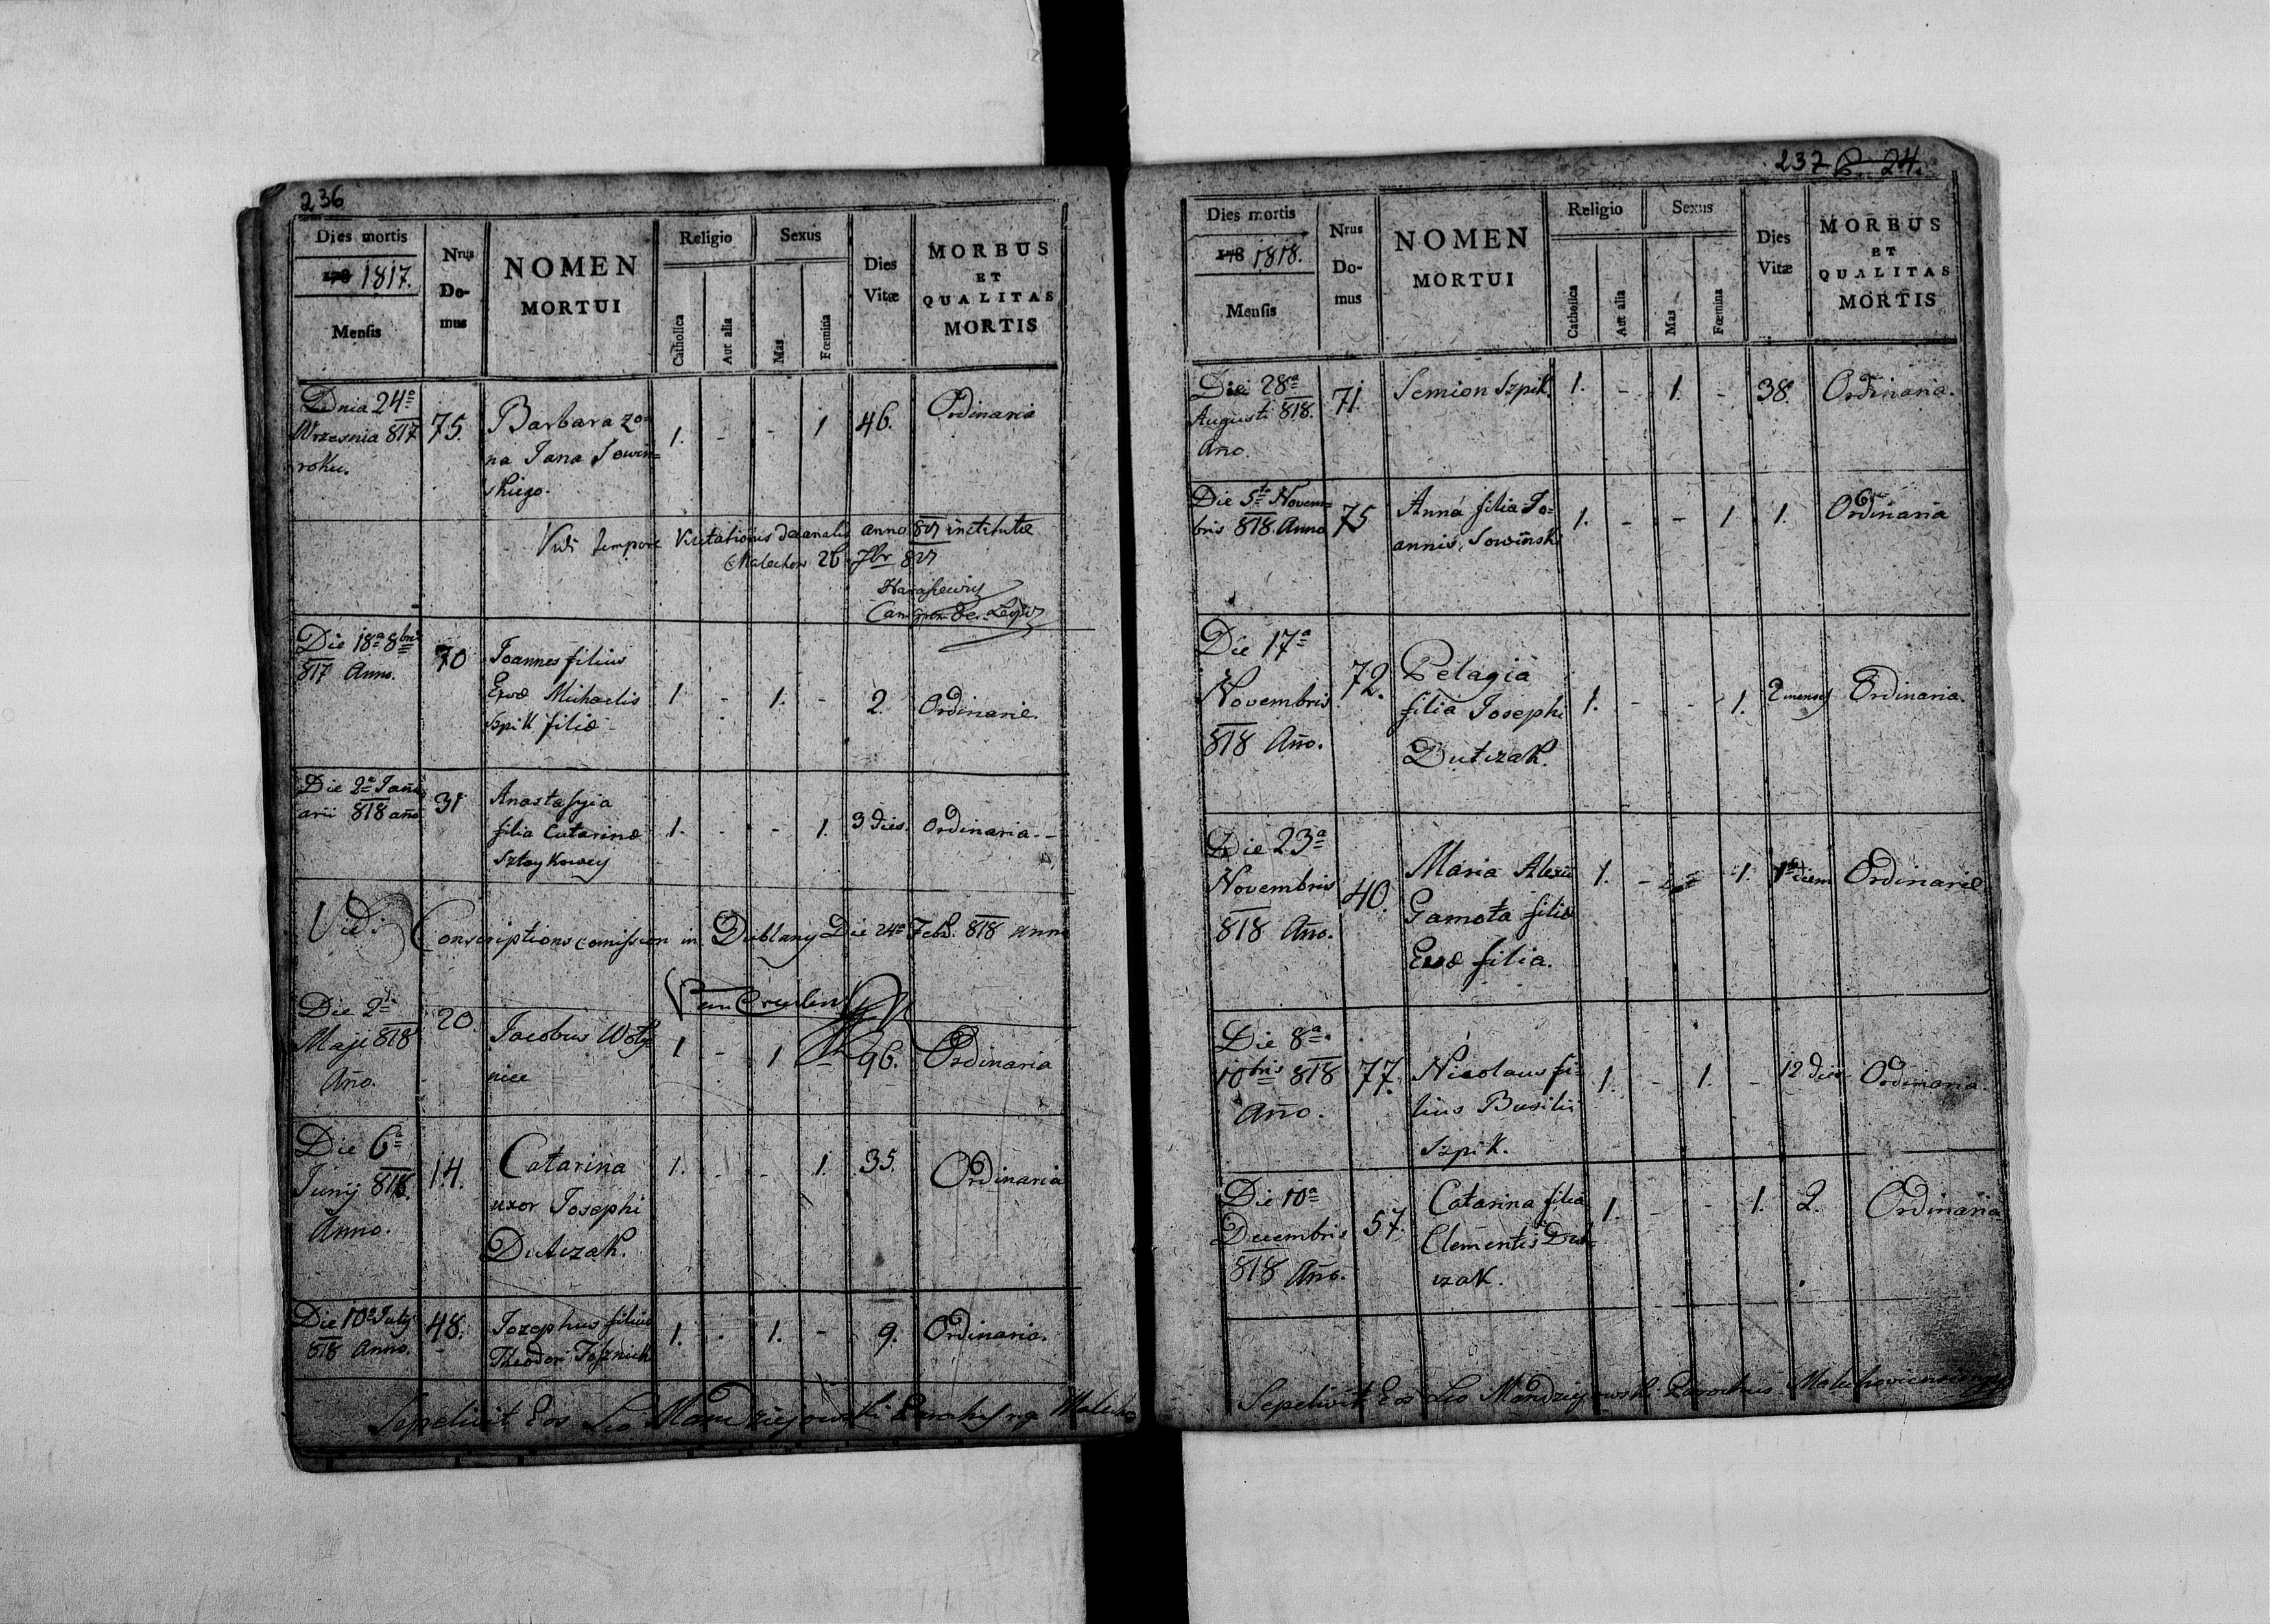 236
Dies mortis
178 1817.
Mensis
Nrus Do-
mus
NOMEN
MORTUI
Religio
Catholica
Aut alia
Sexus
Mas
Fœmina
Dies
Vitæ
MORBUS
ET
QUALITAS
MORTIS
Dnia 24a
Wrzesnia 817
roku.
75.
Barbara żo=
na Jana Sowin=
skiego.
1. - - 1 46. Ordinaria
Vidi tempore Visitationis decanalis anno 817 institutæ
Malechow 26 7br 817
Die 18a 8bris
817 Anno.
70
Joannes filius
Evæ Michaelis
Szpik filiæ
1 - 1. - 2. Ordinariæ.
Die 2a Janu
arii 818 año
31
Anastasyia
filia Catarinæ
Sztoykowey
1. - - 1. 3 dies. Ordinaria - -
Vidi Conscriptions comission in Dublany Die 24a Feb. 818 anno
Die 2a
Maji 818
Año.
20.
Jacobus Woły
niec
1 - 1 96. Ordinaria
Die 6a
Junij 818.
Anno.
14.
Catarina
uxor Josephi
Dutczak.
1. - - 1. 35. Ordinaria
Die 10a July
818 Anno.
48.
Jozephus filius
Theodori
1. - 1. - 9. Ordinaria.
Sepelivit Eos Leo Mandziejowski
237 24.
Dies mortis
178 1818.
Mensis
Nrus
Do-
mus
NOMEN
MORTUI
Religio
Catholica
Aut alia
Sexus
Mas
Fœmina
Dies
Vitæ
MORBUS
ET
QUALITAS
MORTIS
Die 28a
Augusti 818.
Año.
71.
Semion Szpik.
1. - 1. - 38. Ordinaria.
Die 5ta Novem=
bris 818 Anno
75
Anna filia Jo=
annis Sowinski
1. - - 1 1. Ordinaria
Die 17a
Novembris
818 Año.
72.
Pelagia
filia Josephi
Dutczak.
1. - - 1. 2 menses Ordinaria.
Die 23a
Novembris
818 Año.
40.
Maria Alexii
Gamota filiæ
Evæ filia.
1. - - 1. 1 diem Ordinariæ
Die 8a
10bris 818
Año.
77.
Nicolaus fi=
lius Basilii
Szpik.
1. - 1. - 12 dies Ordinaria
Die 10a
Decembris
818 Año.
57.
Catarina filia
Clementis Dut=
czak.
1. - - 1. 2. Ordinaria
Sepelivit Eos Leo Mandziejowski Parochus Malechoviensis